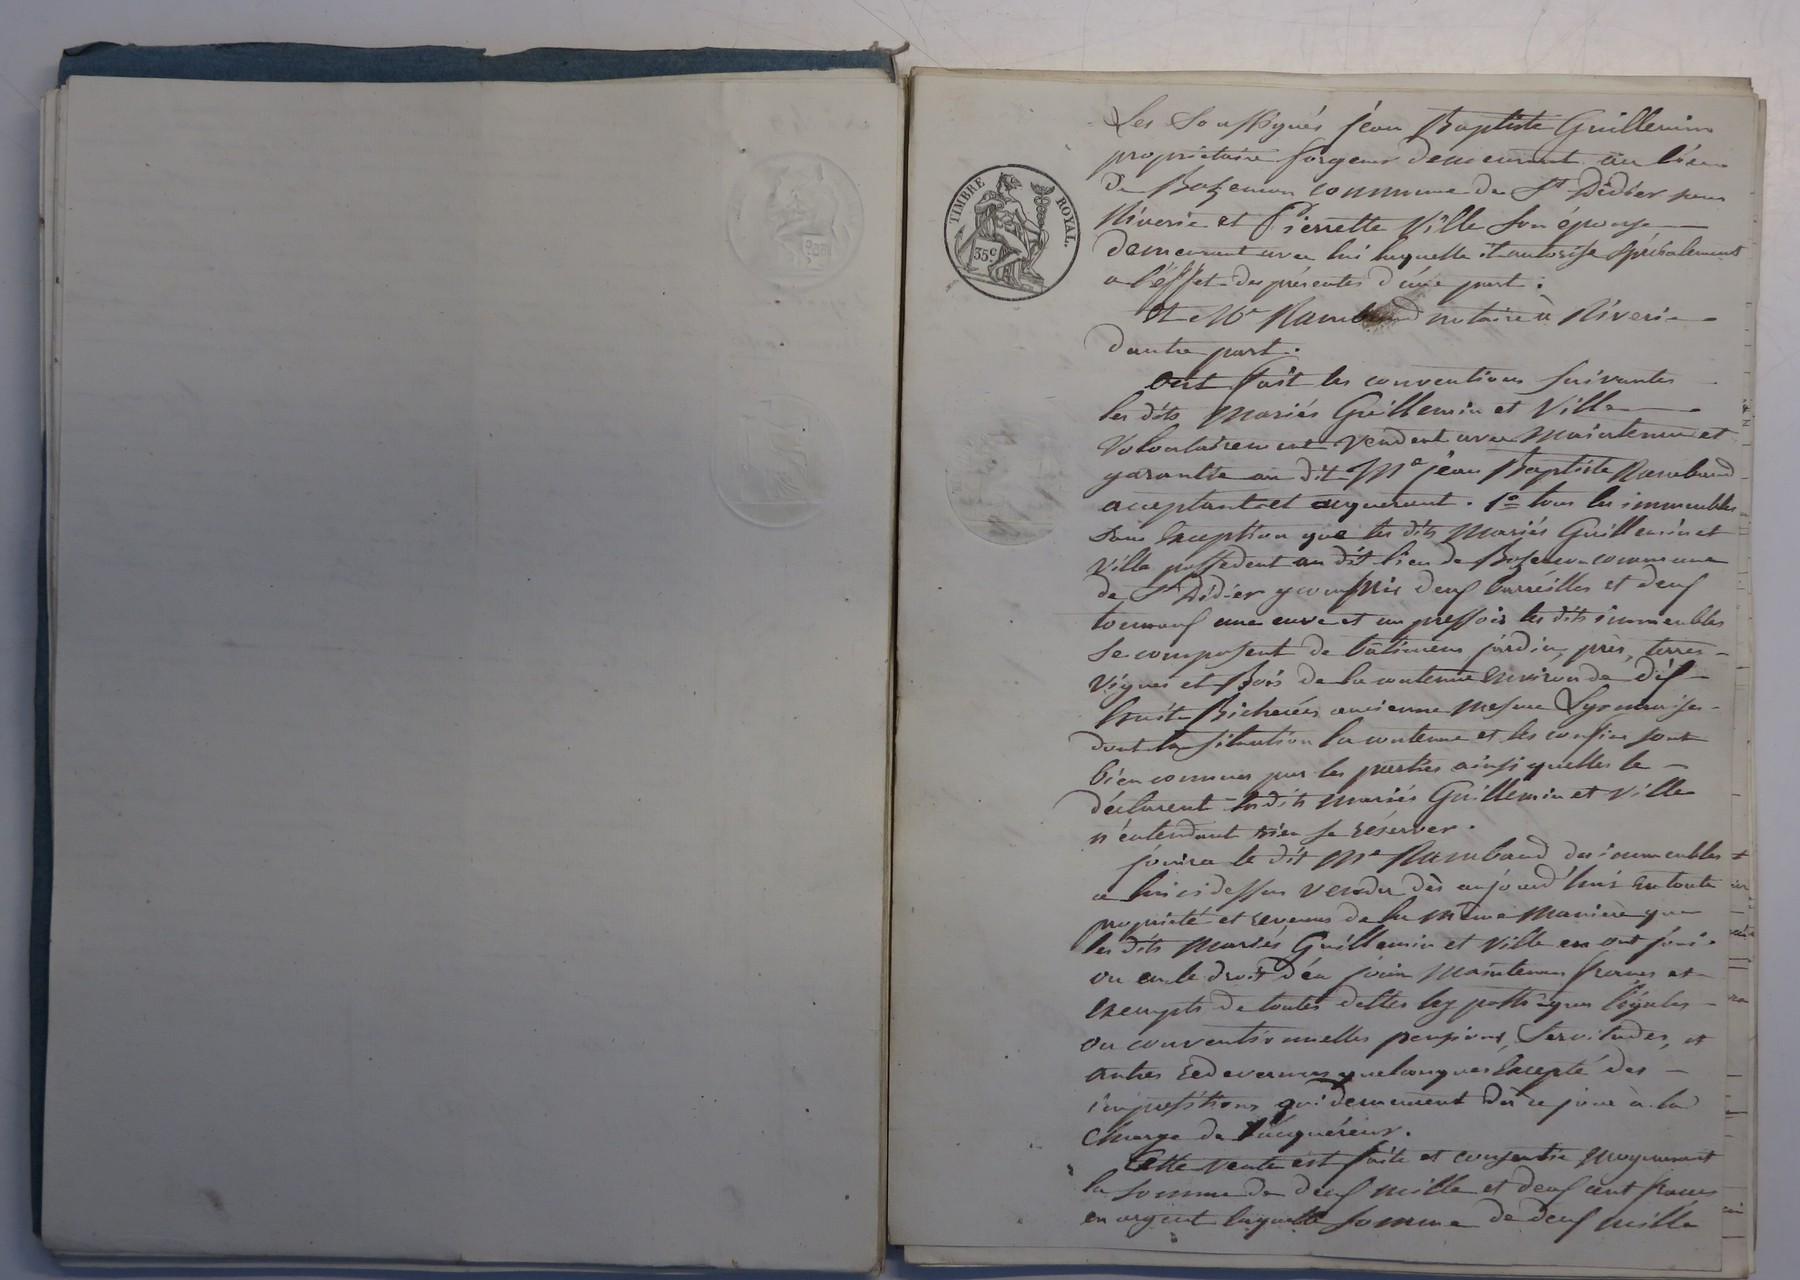 TIMBRE ROYAL.
35c
Les Soussignés jéan Baptiste Guillemin
propriétaire forgeur demeurant au lieu
de Bozemon commune de St Didier sous
Riverie et Pierrette Ville son épouse
demeurant avec lui laquelle il autorise spécialement
a l'éffet des présentes d'une part.
Et Me Rambaud notaire à Riverie
dautre part.
Ont fait les conventions suivantes
les dits mariés Guillemin et Ville
volontairement vendent avec maintenue et
garantie au dit Me jean Baptiste Rambaud
acceptant et acquerant. 1o tous les immeubles
sans exception que les dits mariés Guillemin et
Ville possedent au dit lieu de Bozemon commune
de St Didier y compris deux barreilles et deux
tonneaux une cuve et un pressoir les dits immeubles
se composent de bâtimens jardin, près, terres
vignes et Bois de la contenue environ de dix
huit Bicherées ancienne mesure Lyonnaise
dont la situation la contenue et les confins sont
bien connus par les parties ainsi quelles le
déclarent lesdits mariés Guillemin et Ville
n'entendant rien se réserver.
jouira le dit Me Rambaud des immeubles
a lui ci dessus vendu dès aujourd'hui en toute
propriété et revenus de la même manière que
les dits mariés Guillemin et Ville en ont joui
ou eu le droit d'en jouir maintenus francs et
exempts de toutes dettes hypothèques légales
ou conventionnelles pensions, Servitudes, et
autres redevances quelconques excepté des
impositions qui demeurent dès ce jour à la
charge de l'acquéreur.
Cette vente est faite et consentie moyennant
la somme de deux mille et deux cent francs
en argent laquelle somme de deux mille